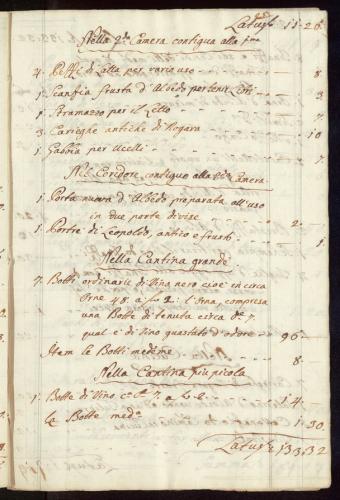 Latus f 11 - 26
Nella 2da Camera contigua alla pma
4. Pezzi di Lalla per vario uso - - - 8
1. Scanzia frusta d'Albedo per tenir - - 3
1. Stramazzo per il Letto - - - 7
3. Carieghe antiche di Nogara - - - 10
1. Gabbia per Ucelli - - - 7
Nel Coridore contiguo alla 2da Camera
1. Porta nuova d'Albedo preparata all'uso
in due parte divise - - - 2 -
1. Portie di Leopoldo, antico e frusto - - 1
Nella Cantina grande
7. Botti ordinarie di Vino nero cioè in circa
Orne 48. a f 2: l'Orna, compresa
una Botte di tenuta circa Orne 7.
qual è di Vino guastato d'odore - - 96 -
Item le Botti medeme - - - 8 -
Nella Cantina più picola
1. Botte di Vino 7. a f 2. - - 14 -
la Botte meda - - 1 30
Latus f 133,32